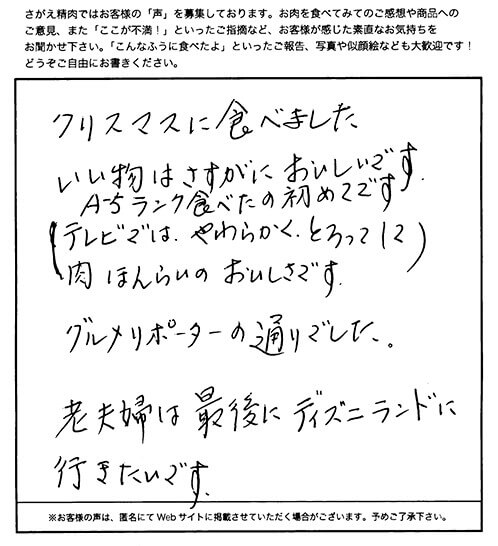 さがえ精肉ではお客様の「声」を募集しております。お肉を食べてみてのご感想や商品への
ご意見、また「ここが不満！」といったご指摘など、お客様が感じた素直なお気持ちを
お聞かせ下さい。「こんなふうに食べたよ」といったご報告、写真や似顔絵なども大歓迎です！
どうぞご自由にお書きください。
クリスマスに食べました
いい物はさすがにおいしいです.
A-5ランク食べたの初めてです
(テレビでは.やわらかく.とろって12)
肉ほんらいのおいしさです.
グルメリポーターの通りでした.。
老夫婦は最後にディズニランドに
行きたいです.
※お客様の声は、匿名にてWebサイトに掲載させていただく場合がございます。予めご了承下さい。